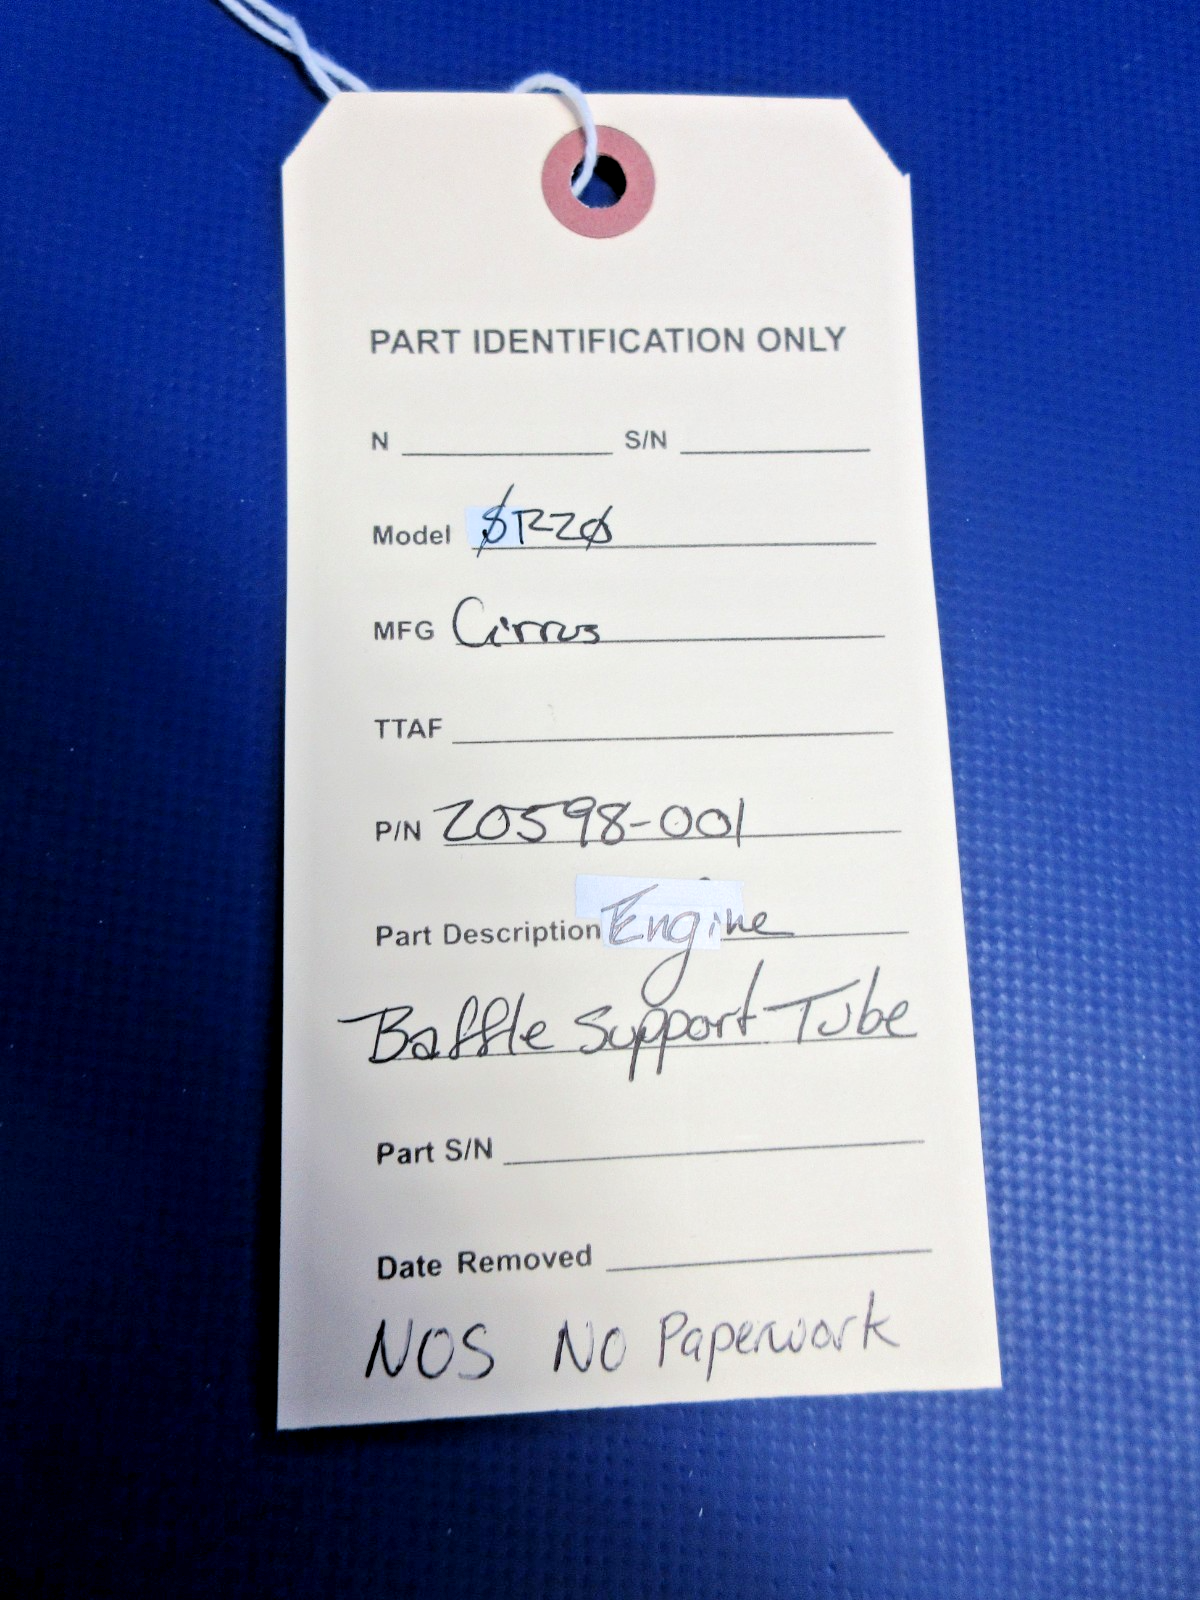 PART IDENTIFICATION ONLY
N S/N
Model SR20
MFG Cirrus
TTAF
P/N 20598-001
Part Description Engine
Baffle Support Tube
Part S/N
Date Removed
NOS No Paperwork